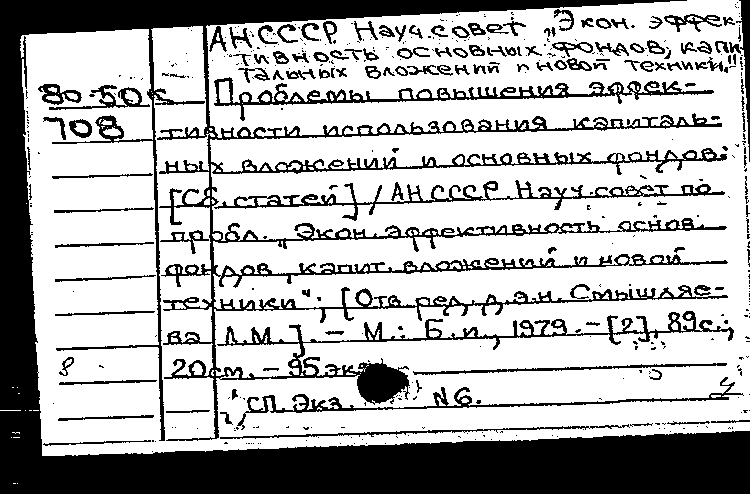 АН СССР. Науч. совет „Экон. эффек-
тивность основных фондов, капи-
тальных вложений и новой техники."
80-50к Проблемы повышения эффек-
708 тивности использования капиталь-
ных вложений и основных фондов:
[Сб. статей] / АН СССР. Науч. совет по
пробл. „Экон. эффективность основ.
фондов, капит. вложений и новой
техники"; [Отв. ред. д.э.н. Смышляе-
ва Л.М.]. – М.: Б.и., 1979. – [2], 89с.;
8 20см. – 95 экз.
СП. Экз. N6.